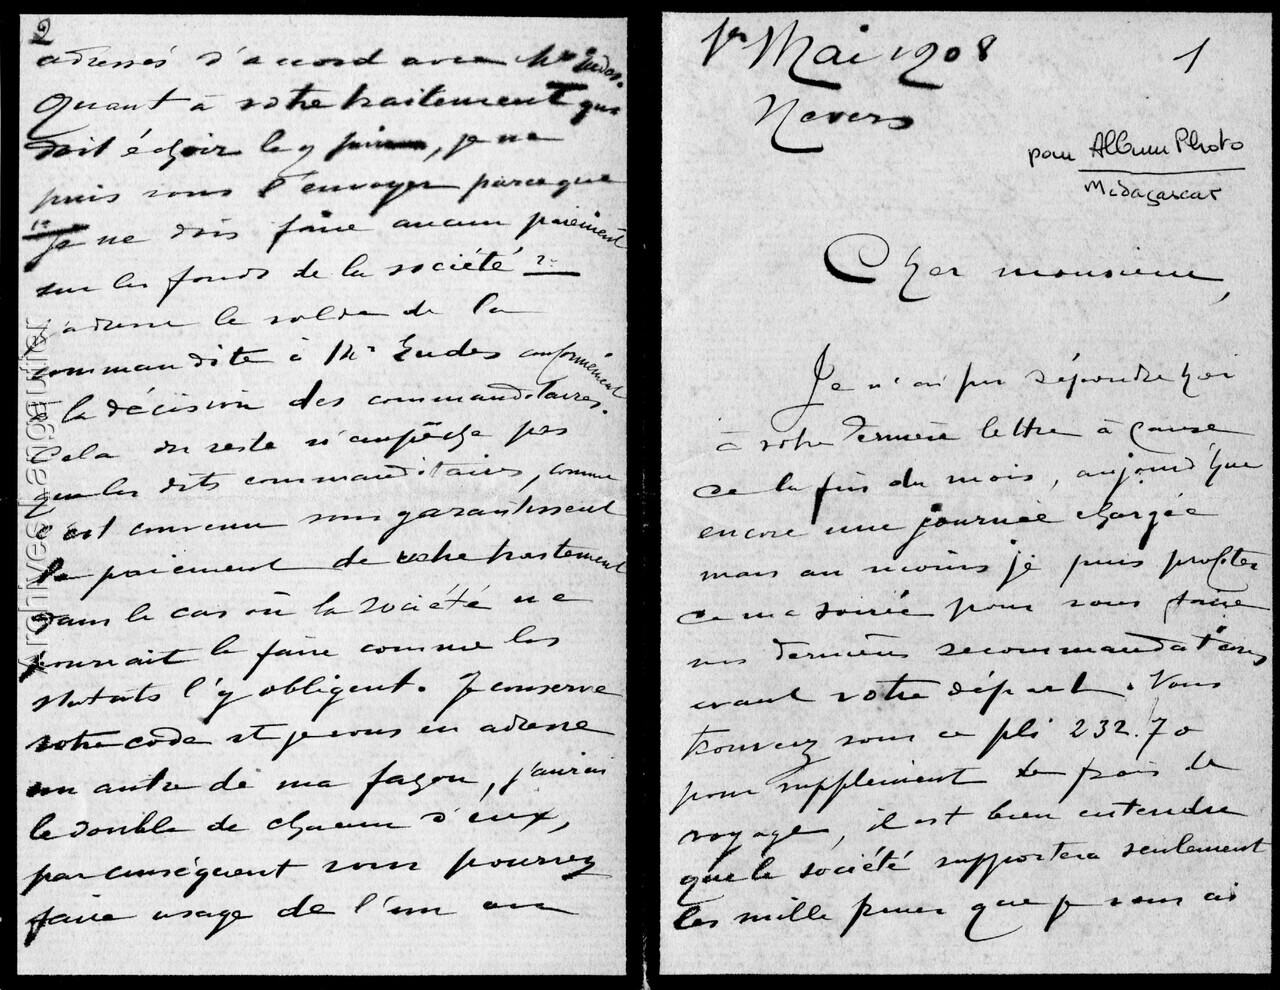 1er Mai 1908
1
Nevers
pour Album Photo
Madagascar
Cher monsieur,
Je n'ai pu répondre hier
à votre dernière lettre à cause
de la fin du mois, aujourd'hui
encore une journée chargée
mais au moins je puis profiter
de ma soirée pour vous faire
mes dernières recommandations
avant votre départ. Vous
trouverez sous ce pli 232.70
pour supplément de frais de
voyage, il est bien entendu
que la société supportera seulement
les mille francs que je vous ai
2
adressés d'accord avec Mr Eudes.
Quant à votre traitement qui
doit échoir le 9 juin, je ne
puis vous l'envoyer parce que
1° je ne dois faire aucun paiement
sur les fonds de la société 2°
j'adresse le solde de la
commandite à Mr Eudes conformément
à la décision des commanditaires.
Cela du reste n'empêche pas
que les dits commanditaires, comme
c'est convenu vous garantissent
le paiement de votre traitement
dans le cas où la société ne
pourrait le faire comme les
statuts l'y obligent. Je conserve
votre code et je vous en adresse
un autre de ma façon, j'aurai
le double de chacun d'eux,
par conséquent vous pourrez
faire usage de l'un ou
ArchivesManganier